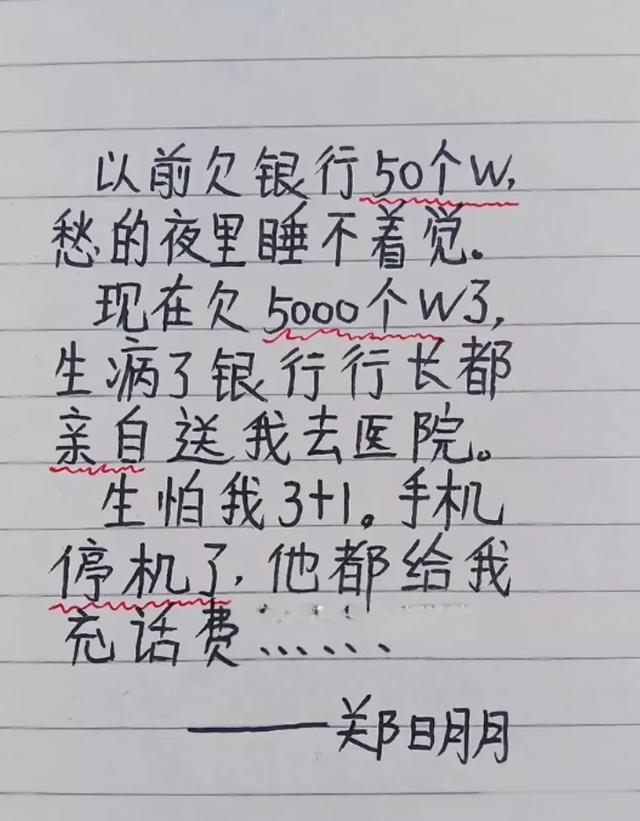 以前欠银行50个W,
愁的夜里睡不着觉。
现在欠5000个W3,
生病了银行行长都
亲自送我去医院。
生怕我3+1。手机
停机了,他都给我
充话费……
——郑明月